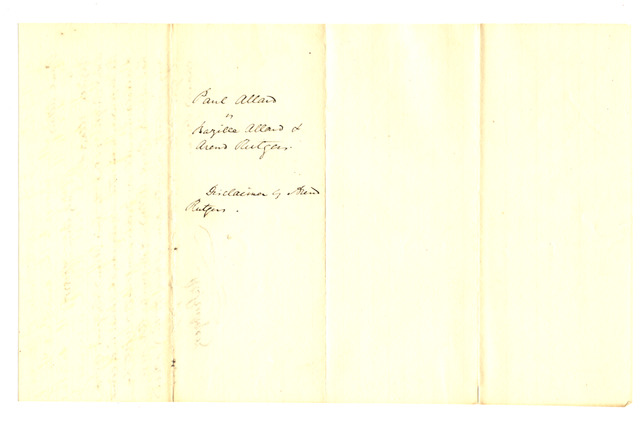 Paul Allard
vs
Razilla Allard &
Arend Rutgers.
Disclaimer by Arend
Rutgers.